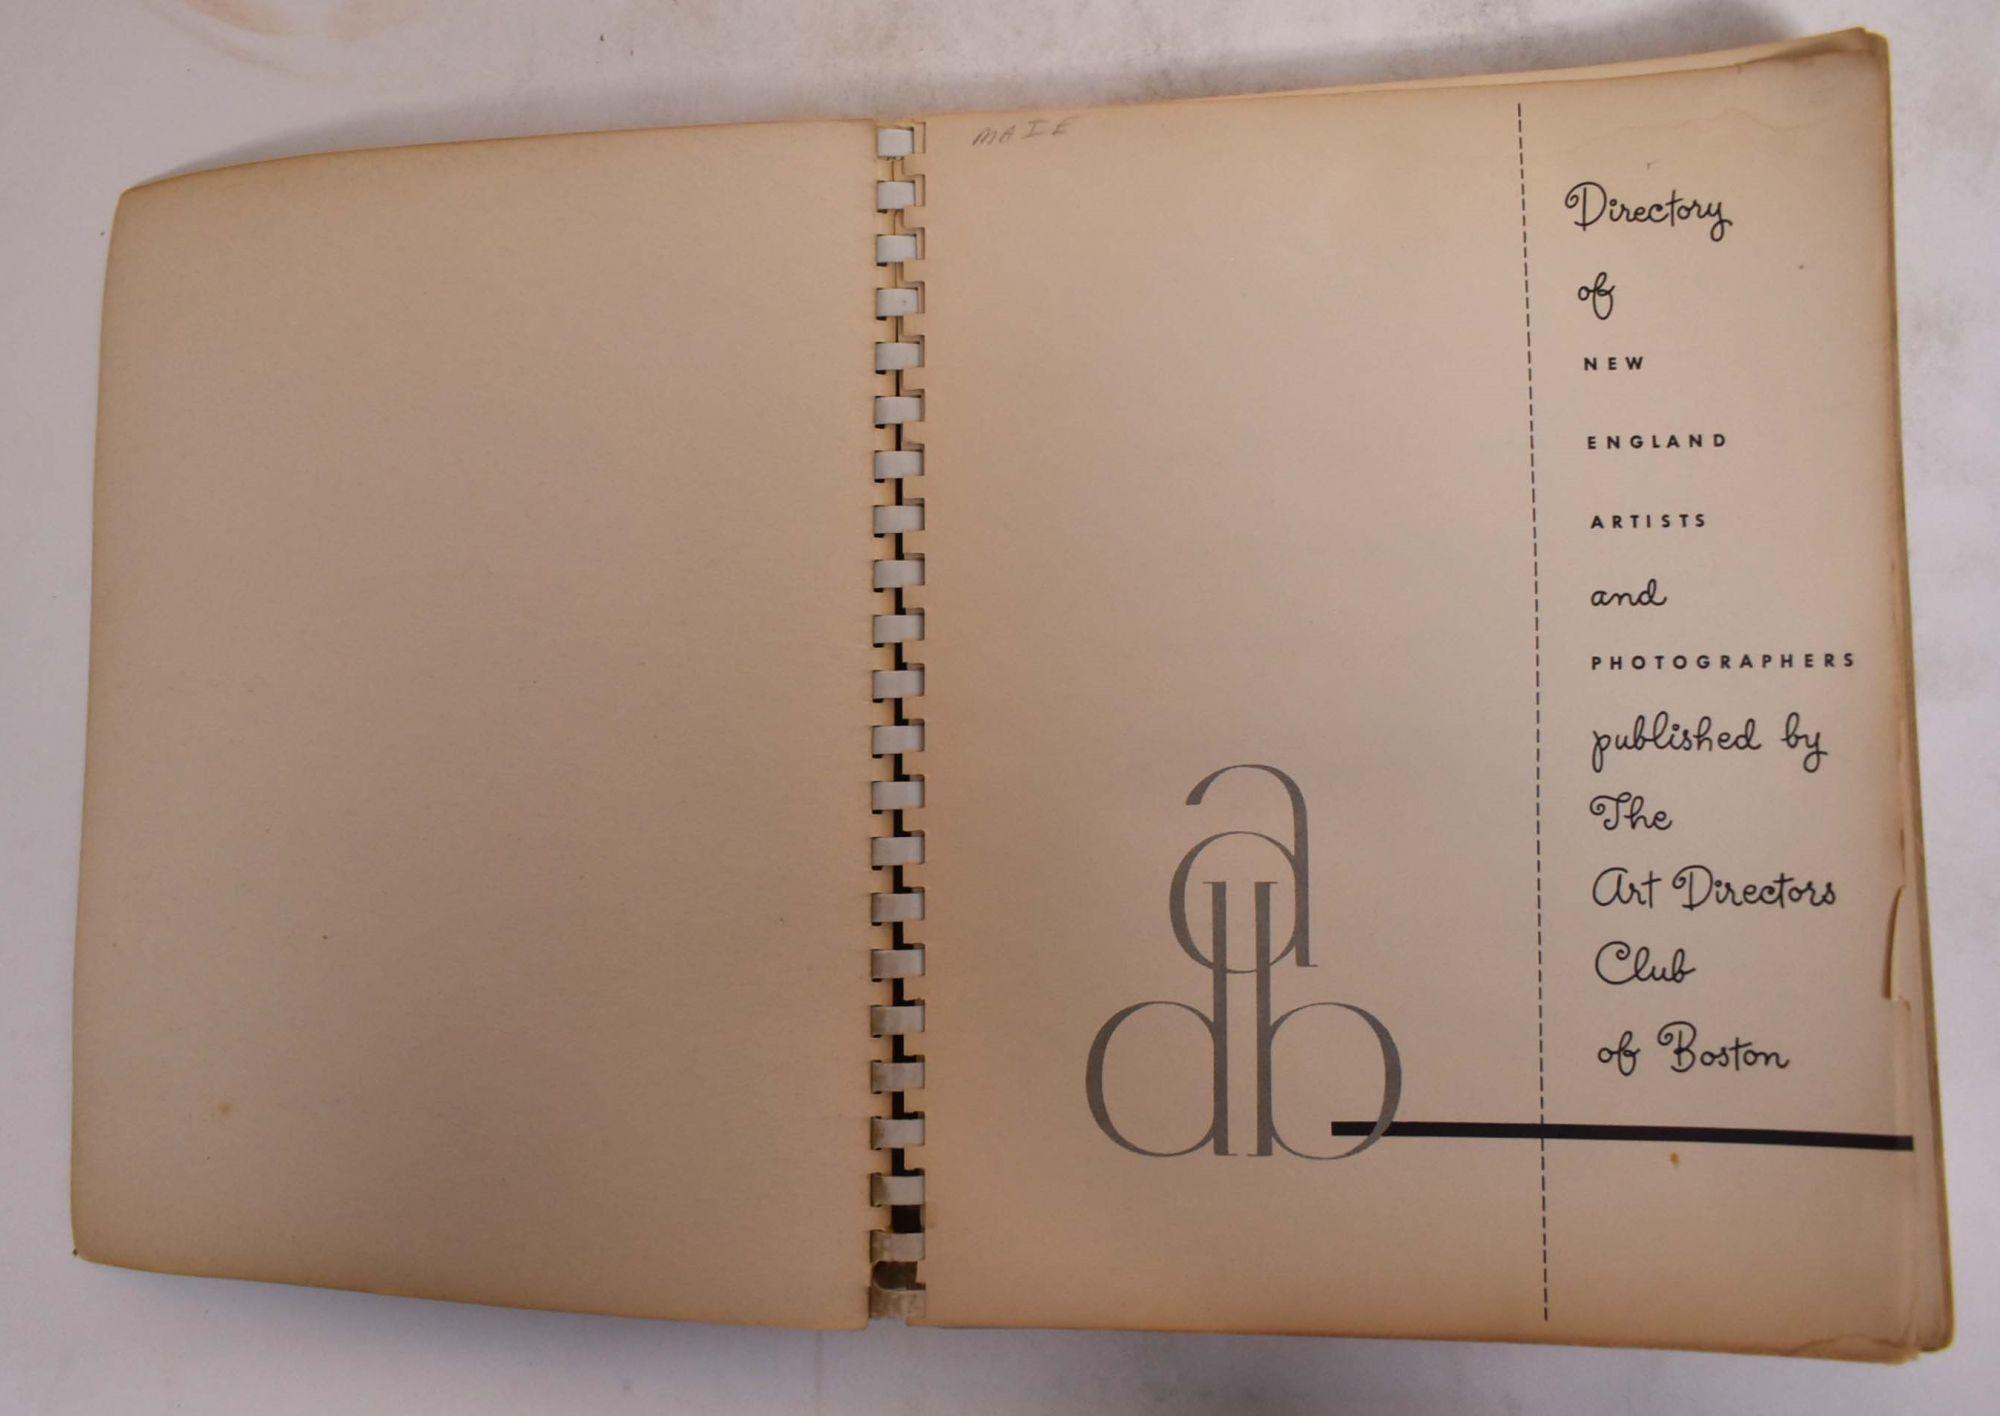 MAIE
Directory
of
NEW
ENGLAND
ARTISTS
and
PHOTOGRAPHERS
published by
The
Art Directors
Club
of Boston
a
db